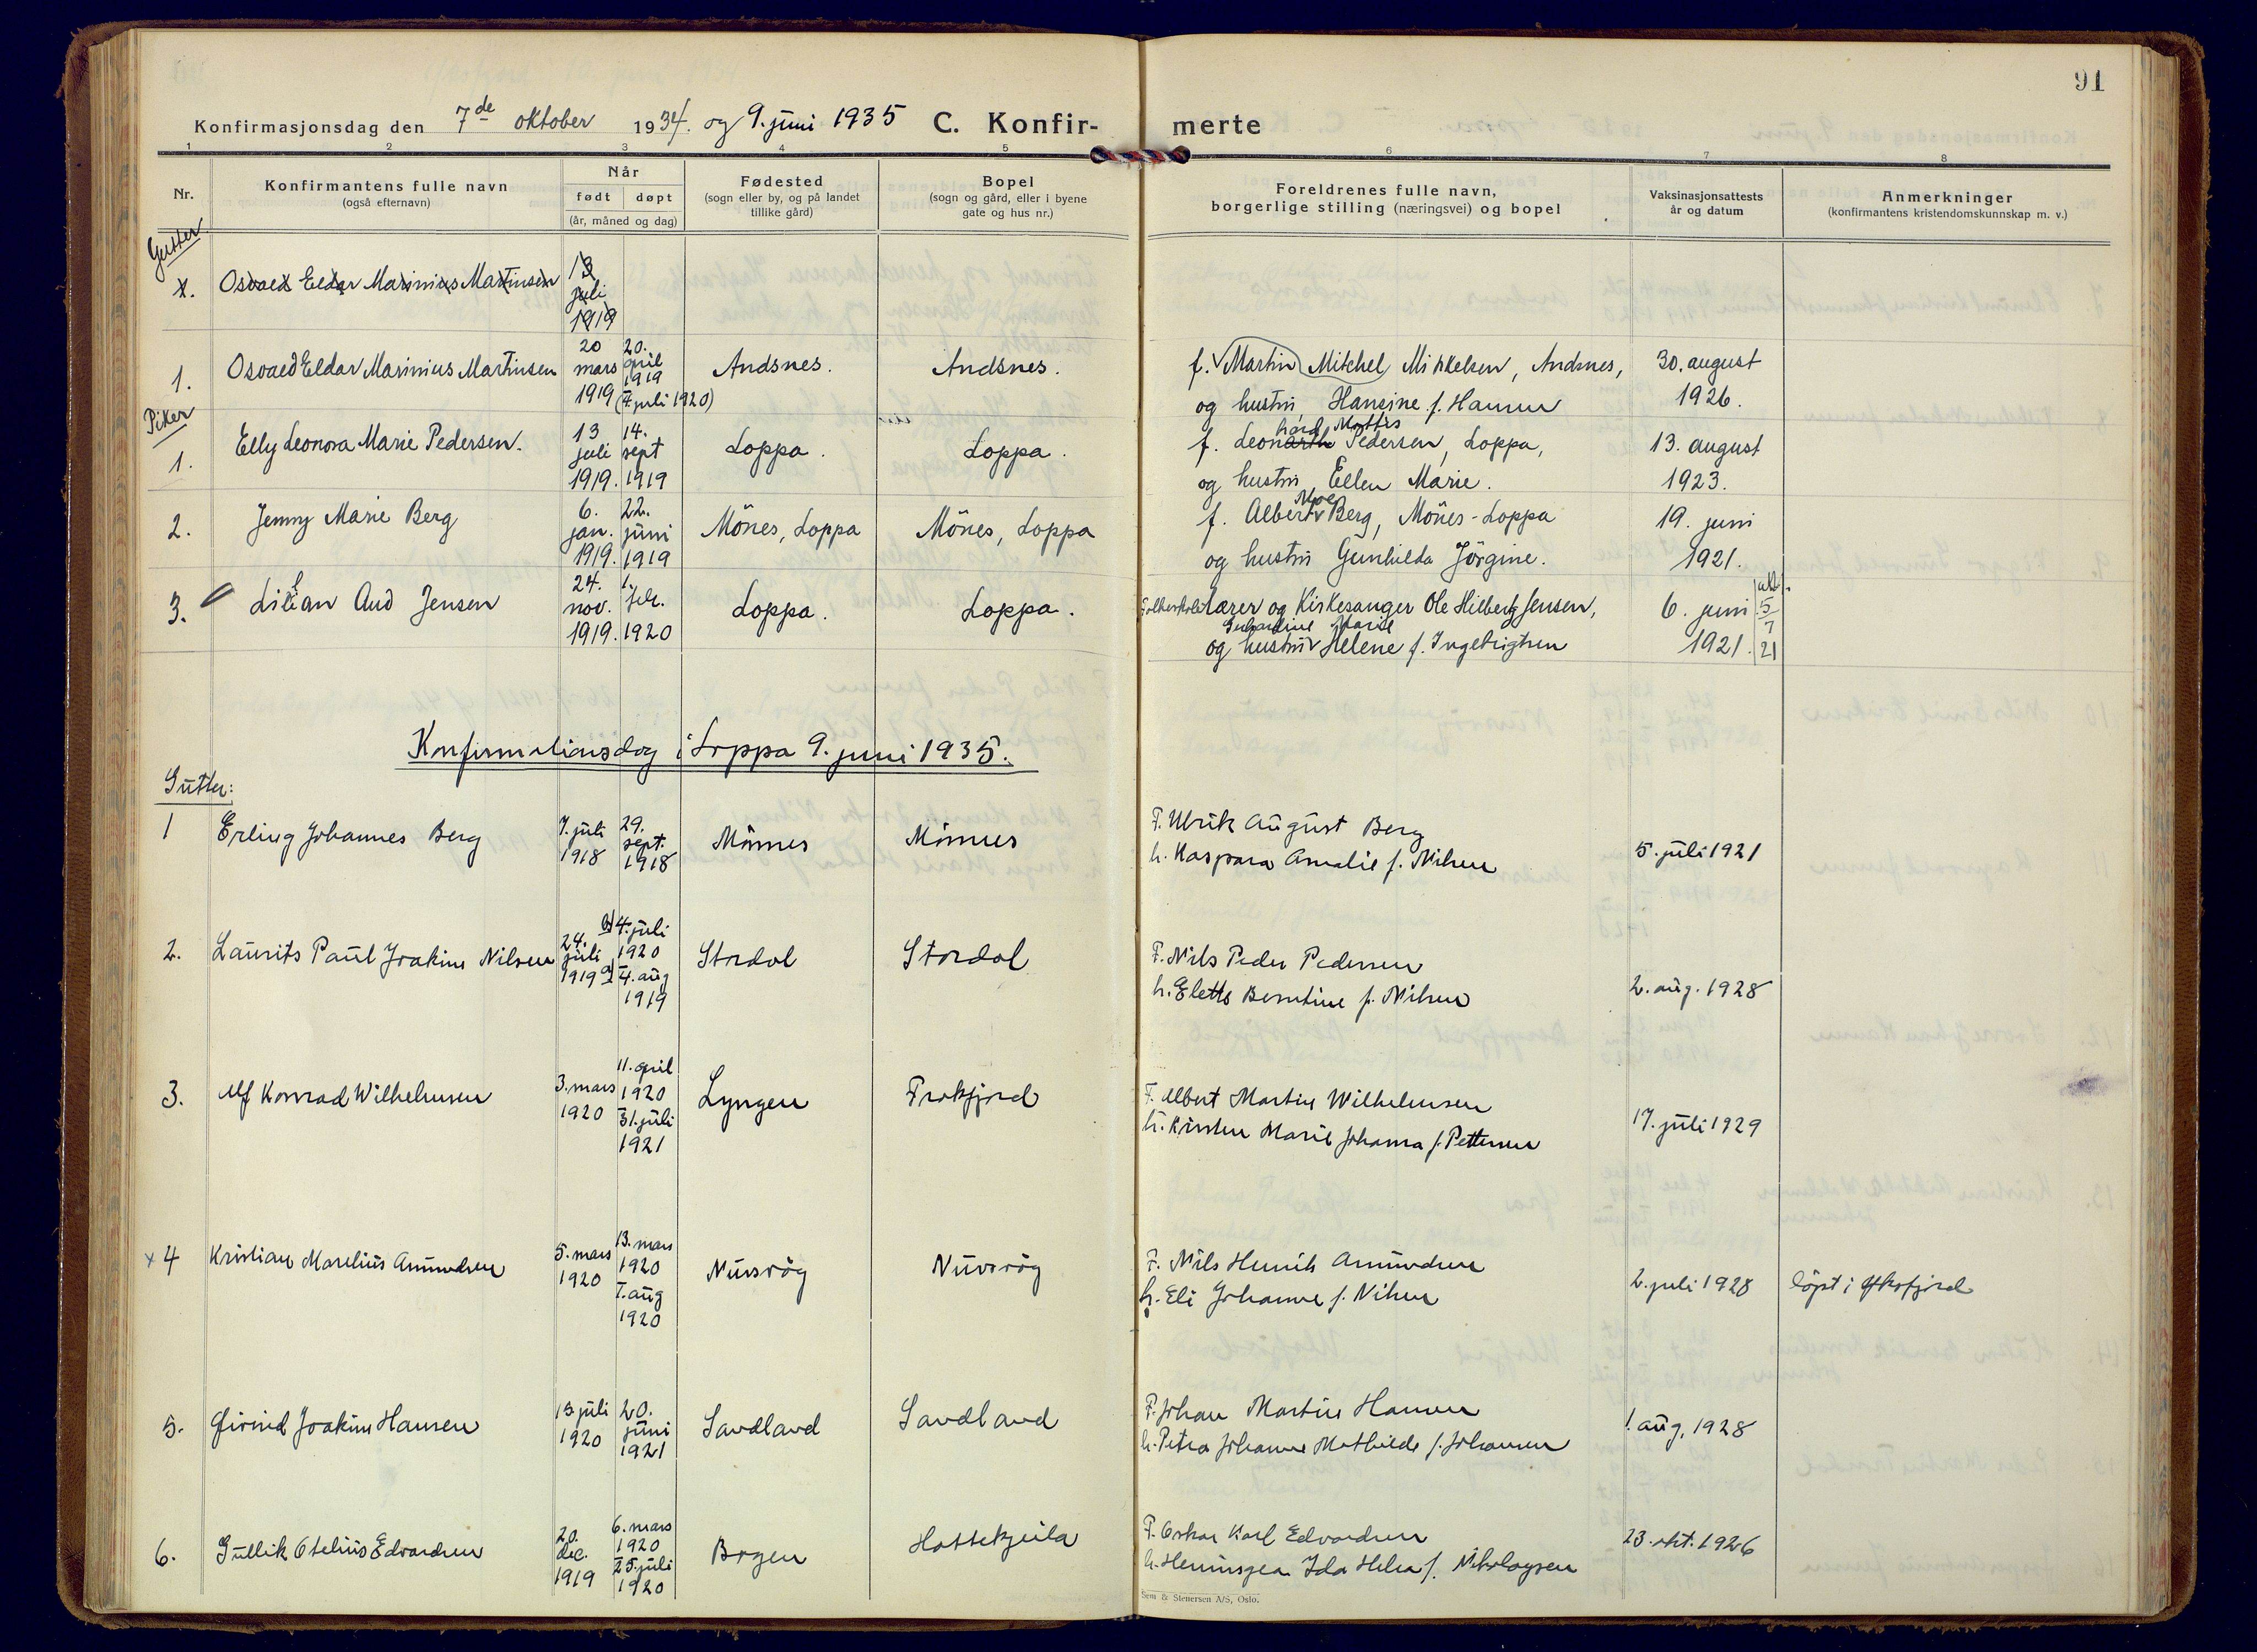 91
Konfirmasjonsdag den 7de oktober 1934. og 9. juni 1935 C. Konfir- merte
1 2 3 4 5 6 7 8
Nr.
Konfirmantens fulle navn
(også efternavn)
Når
født døpt
(år, måned og dag)
Fødested
(sogn eller by, og på landet
tillike gård)
Bopel
(sogn og gård, eller i byene
gate og hus nr.)
Foreldrenes fulle navn,
borgerlige stilling (næringsvei) og bopel
Vaksinasjonsattests
år og datum
Anmerkninger
(konfirmantens kristendomskunnskap m. v.)
Gutter
1. Osvald Eldar Marinius Martinsen 13 juli 1919
1. Osvald Eldar Marinius Martinsen
20 mars 1919
20. april 1919 (4 juli 1920)
Andsnes.
Andsnes.
f. Martin Mitchel Mikkelsen, Andsnes,
og hustru Hansine f. Hansen
30. august
1926.
Piker
1. Elly Leonora Marie Pedersen.
13 juli 1919.
14. sept 1919
Loppa.
Loppa.
f. Leonarth hard Mattis Pedersen, Loppa,
og hustru Ellen Marie.
13. august
1923.
2. Jenny Marie Berg
6. jan. 1919.
22. juni 1919
Mönes, Loppa
Mönes, Loppa
f. Albert Moe Berg, Mönes-Loppa
og hustru Gunhilda Jörgine.
19. juni
1921.
3. Lillian Aud Jensen
24. nov. 1919.
1. febr. 1920
Loppa.
Loppa.
Folkeskolelærer og Kirkesanger Ole Hilbert Jensen,
og hustru Gerhardine Marie Helene f. Ingebrigtsen
6. juni
1921.
5/7 21
Konfirmationsdag i Loppa 9. juni 1935.
Gutter:
1 Erling Johannes Berg
7. juli 1918
29. sept. 1918
Mönnes
Mönnes
F. Ulrik August Berg
h. Kaspara Amalie f. Nilsen
5. juli 1921
2. Laurits Paul Joakim Nilsen
24. juli 1919
b) 4. juli 1920
a) 4. aug 1919
Stordal
Stordal
F. Nils Peder Pedersen
h. Elette Berntine f. Nilsen
2. aug. 1928
3. Alf Konrad Wilhelmsen
3. mars 1920
11. april 1920
31. juli 1921
Lyngen
Frakfjord
F. Albert Martin Wilhelmsen
h. Kirsten Marie Johanna f. Pettersen
17. juli 1929
x 4 Kristian Marelius Amundsen
5. mars 1920
13. mars 1920
1. aug 1920
Nuvsvåg
Nuvsvåg
F. Nils Henrik Amundsen
h. Eli Johanne f. Nilsen
2. juli 1928
löpt i Öksfjord
5. Øivind Joakim Hansen
13 juli 1920
20. juni 1921
Sandland
Sandland
F. Johan Martin Hansen
h. Petra Johanne Mathilde f. Johansen
1 aug. 1928
6. Gullik Otelius Edvardsen
20. dec. 1919
6. mars 1920
25. juli 1920
Bogen
Hattekjeila
F. Oskar Karl Edvardsen
h. Henninggea Ida Helea f. Nikolaysen
23. okt. 1926
Sem & Stenersen A/S, Oslo.